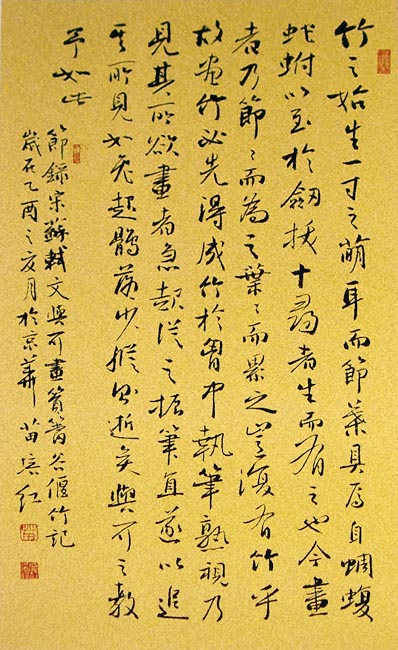 竹之始生一寸之萌耳而節葉具焉自蜩蝮
虵蚹以至於劔拔十尋者生而有之也今畫
者乃節々而為之葉々而累之豈復有竹乎
故畫竹必先得成竹於胷中執筆熟視乃
見其所欲畫者急起從之振筆直遂以追
其所見如兔起鶻落少縱則逝矣與可之教
予如此
節錄宋蘇軾文與可畫篔簹谷偃竹記
歲在乙酉之夏月於京華 苗培红